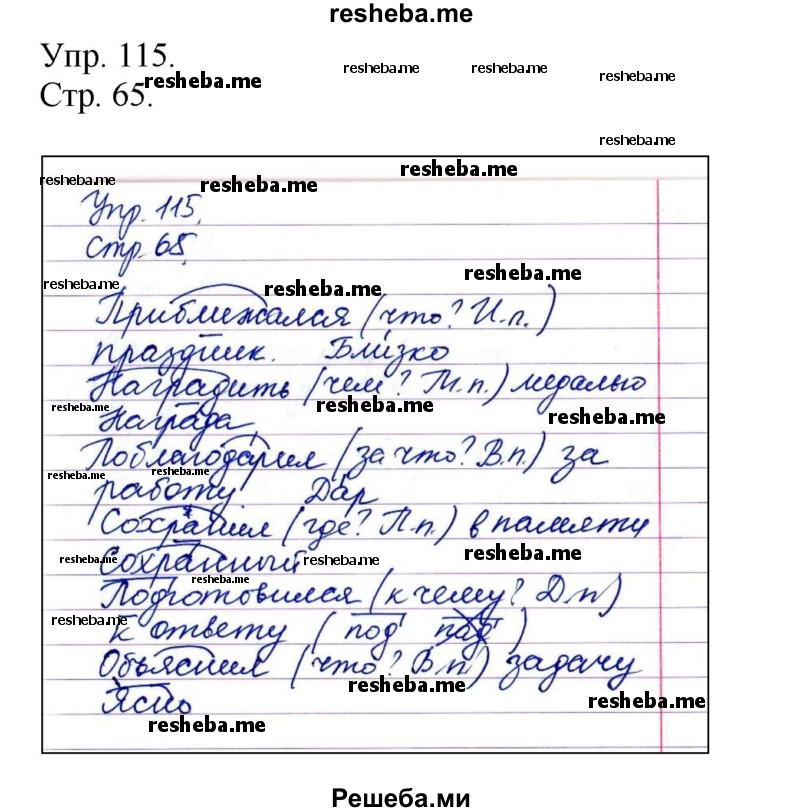 resheba.me
Упр. 115.
resheba.me resheba.me resheba.me resheba.me
Стр. 65.
resheba.me
resheba.me
resheba.me resheba.me
Упр. 115.
Стр. 65.
resheba.me
resheba.me resheba.me
Приближался (что? И.п.)
праздник. Близко
Наградить (чем? Т.п.) медалью
resheba.me resheba.me resheba.me
Награда
Поблагодарил (за что? В.п.) за
resheba.me resheba.me
работу Дар
Сохранил (где? П.п.) в памяти
resheba.me resheba.me resheba.me
Сохранный
resheba.me
Подготовился (к чему? Д.п)
resheba.me
к ответу (под над)
Объяснил (что? В.п) задачу
resheba.me
Ясно
resheba.me
resheba.me
Решеба.ми